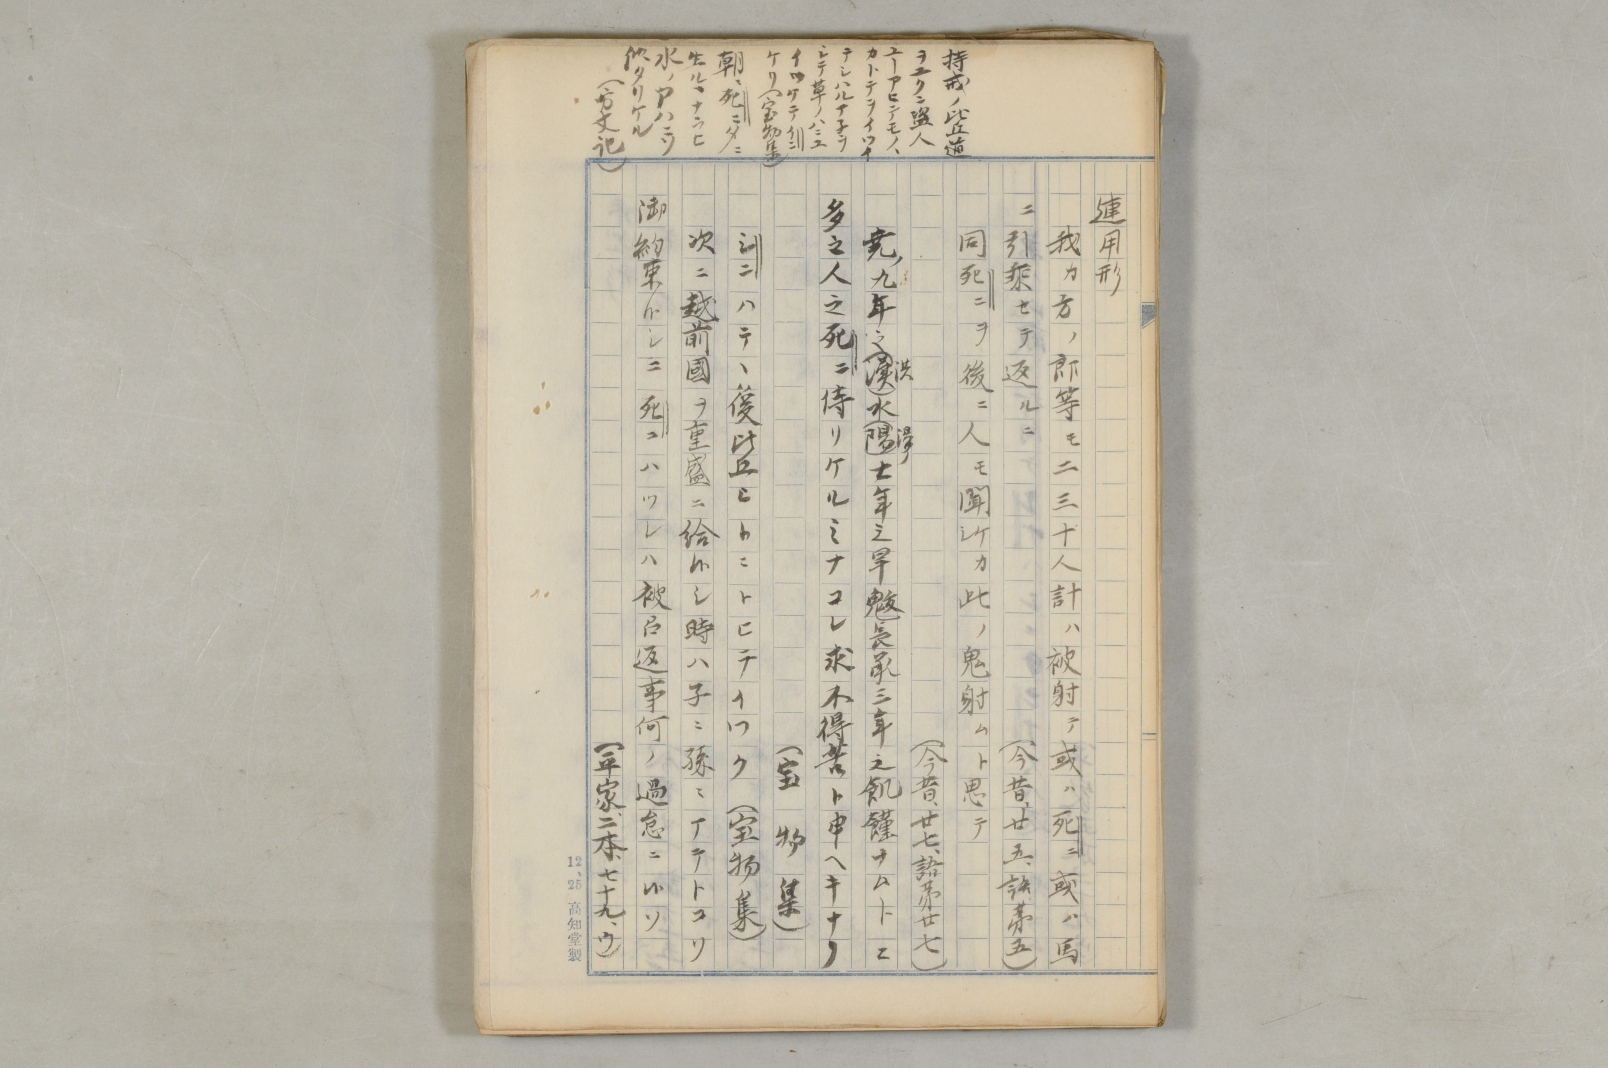 持戒ノ比丘道
ヲユクニ盗人
ユーアヒテモノヽ
カトテヲイツナ
テシハルナ子ヲ
シテ草ノハニユ
イツケテ
ケリ(宝物集)
朝ニ死ニタニ
生ルヽナラヒ
水ノアハニソ
似タリケル
(方丈記)
連用形
我カ方ノ郎等モ二三十人計ハ被射テ或ハ死ニ或ハ馬
ニ引乗セテ返ルニ (今昔、廿五、語第五)
同死ニヲ後ニ人モ聞ケカ此ノ鬼射ムト思テ
(今昔、廿七、語第廿七)
尭ノ九年之(漢)洪水(陽)湯七年之旱魃長承三年之飢饉ナムトニ
多之人之死ニ侍リケルミナコレ求不得苦ト申ヘキナリ
(宝物集)
ニハテヽ後比丘ヒトニトヒテイワク (宝物集)
次ニ越前國ヲ重盛ニ給ハシ時ハ子ミ孫ミマテトコソ
御約束ハシニ死コハツレハ被召返事何ノ過怠ニハソ
(平家、二本、七十九、ウ)
12、25 高知堂製